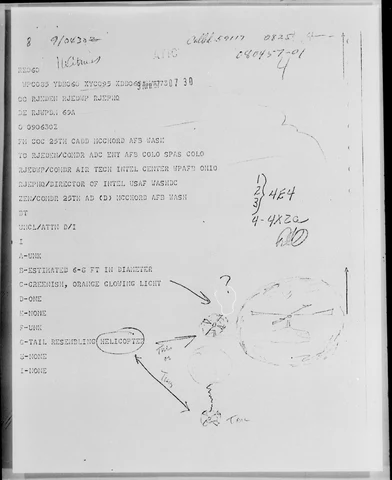 8 9/0630Z
Called 59117 0825
080457-01
4
RED60
YPC085 YDB060 XYC095 XDB065
OO RJEDEN RJEDWP RJEPHQ
DE RJWPBN 69A
O 090630Z
FM COC 25TH CADD MCCHORD AFB WASH
TO RJEDEN/COMDR ADC ENT AFB COLO SPGS COLO
RJEDWP/COMDR AIR TECH INTEL CENTER WPAFB OHIO
RJEPHQ/DIRECTOR OF INTEL USAF WASHDC
ZEN/COMDR 25TH AD (D) MCCHORD AFB WASH
BT
UNCL/ATTN D/I
I
A-UNK
B-ESTIMATED 6-8 FT IN DIAMETER
C-GREENISH, ORANGE GLOWING LIGHT
D-ONE
E-NONE
F-UNK
G-TAIL RESEMBLING HELICOPTER
H-NONE
I-NONE
1)
2) 4E4
3)
4-4X2a
?
This
is
This